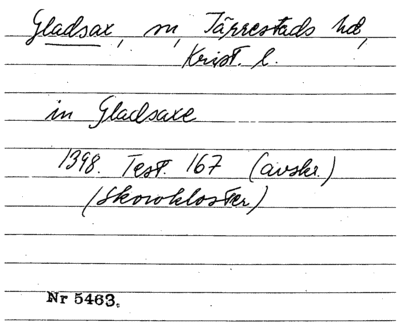 Gladsax, sn, Järrestads hd,
Krist. l.
in Gladsaxe
1398. Test. 167 (avskr.)
(Skovokloster)
Nr 5463.